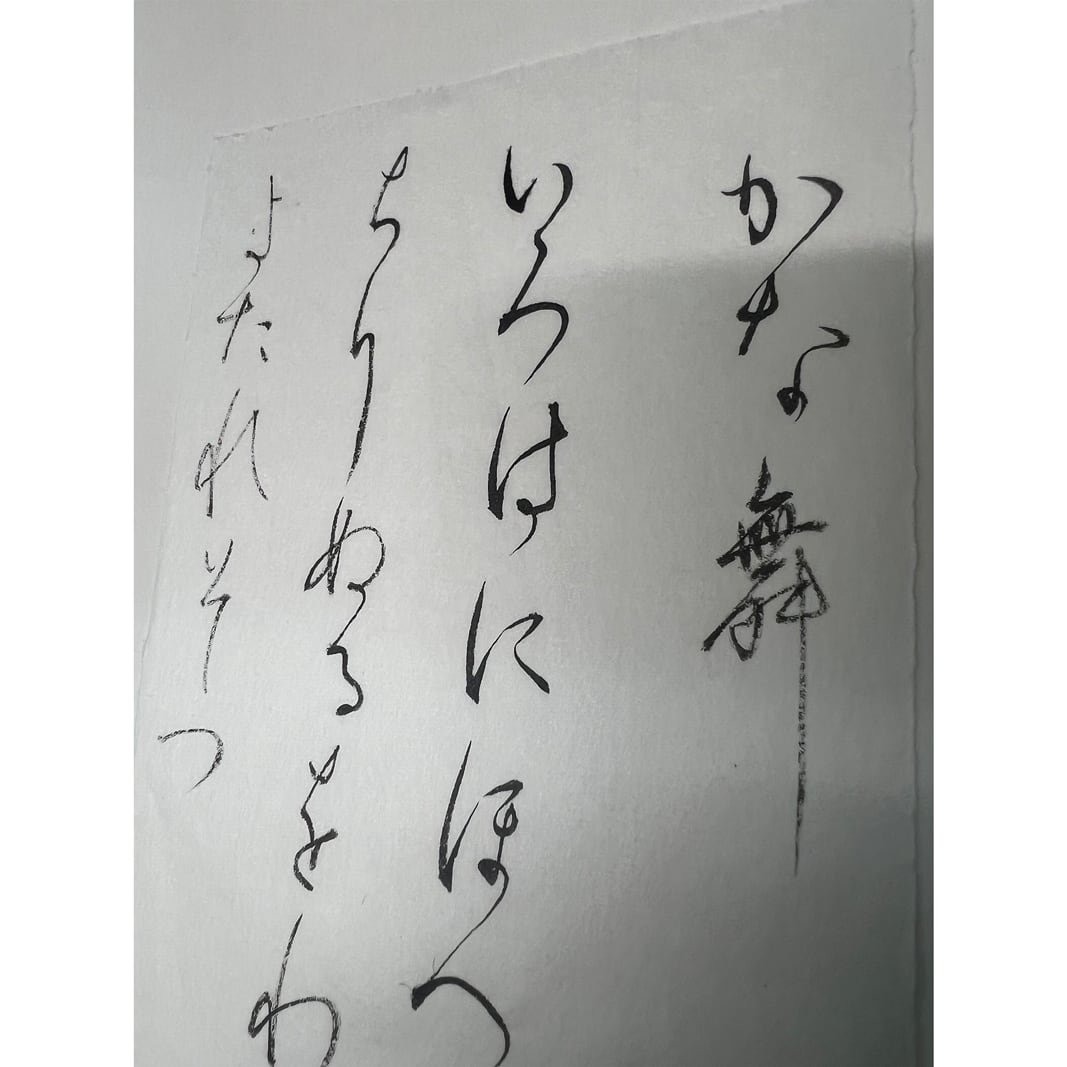 かな舞
いろはにほへ
ちりぬるをわ
よたれそつ